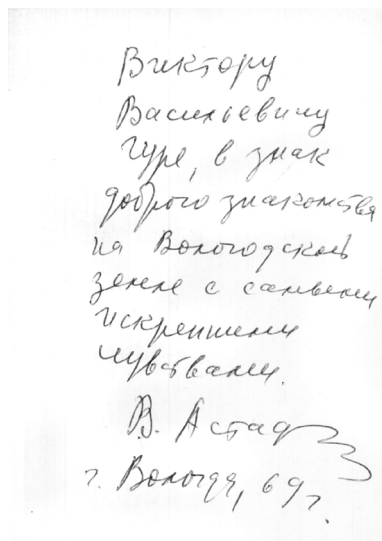 Виктору
Васильевичу
Гуре, в знак
доброго знакомства
на Вологодской
земле с самыми
искренними
чувствами.
В. Астаф
г. Вологда, 69 г.